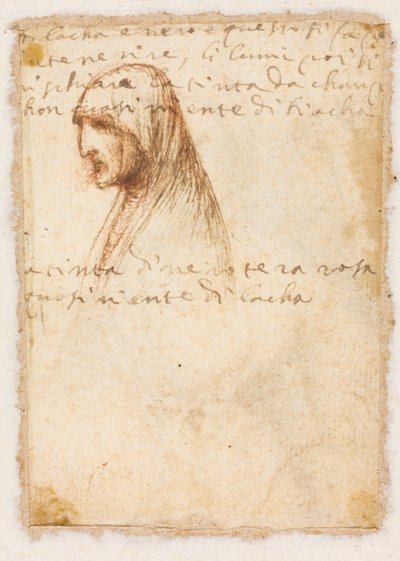 di lacha e nero e questo si fa
nte nerire, li lumi poi si
rischiare la tinta da
hon quasi niente di biacha
a tinta di nero tera rosa
quasi niente di lacha